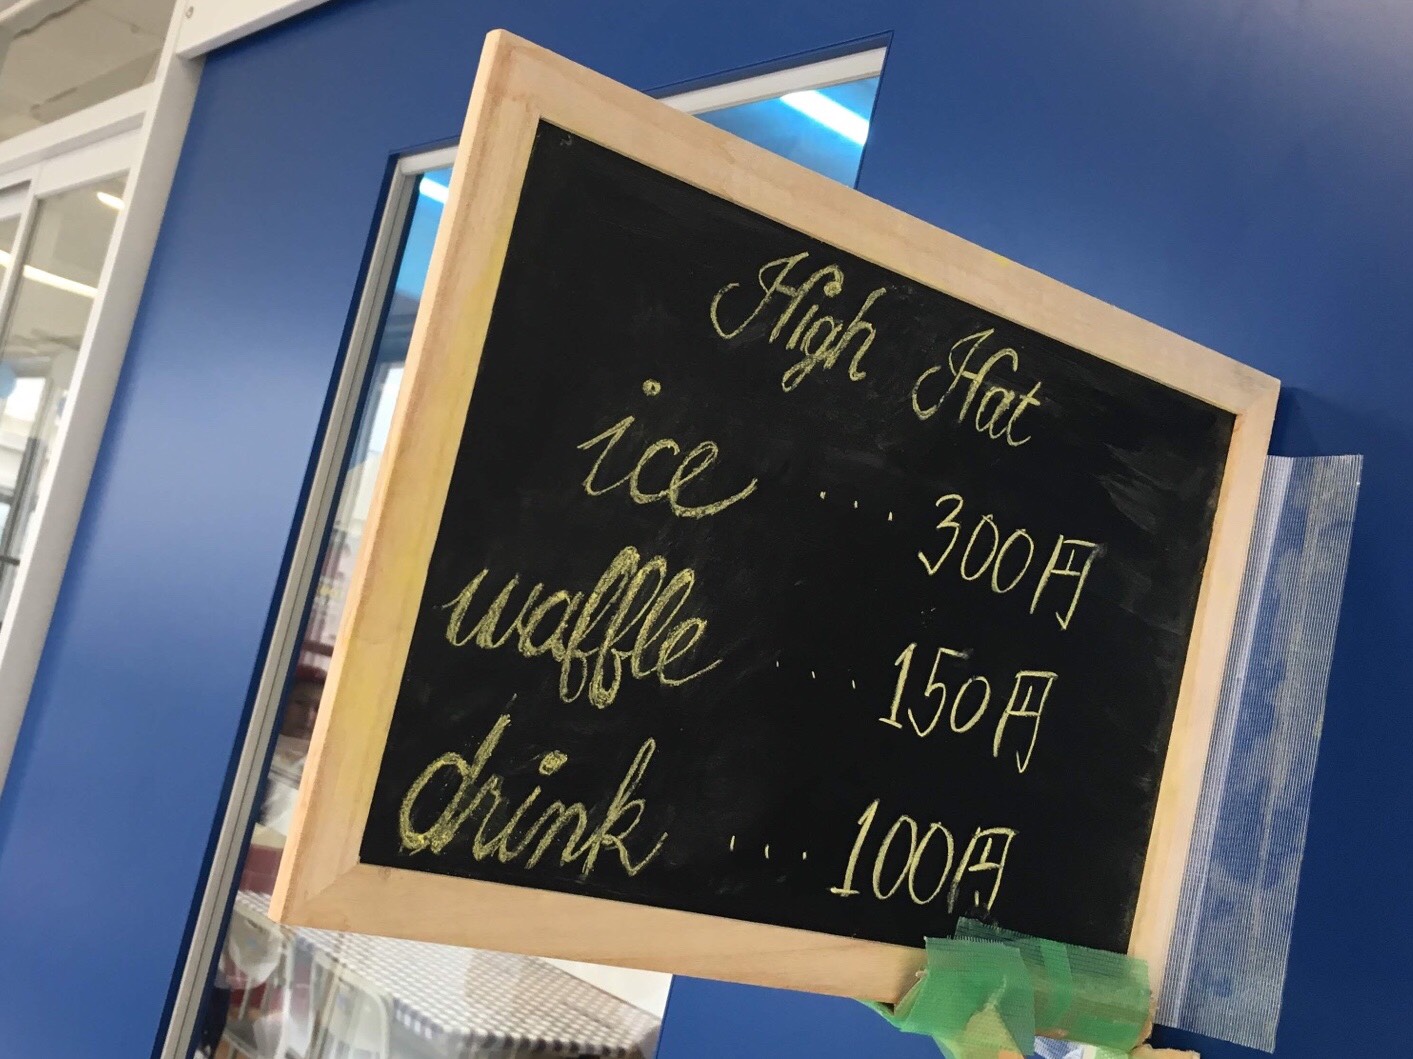 High Hat
ice ... 300円
waffle ... 150円
drink ... 100円